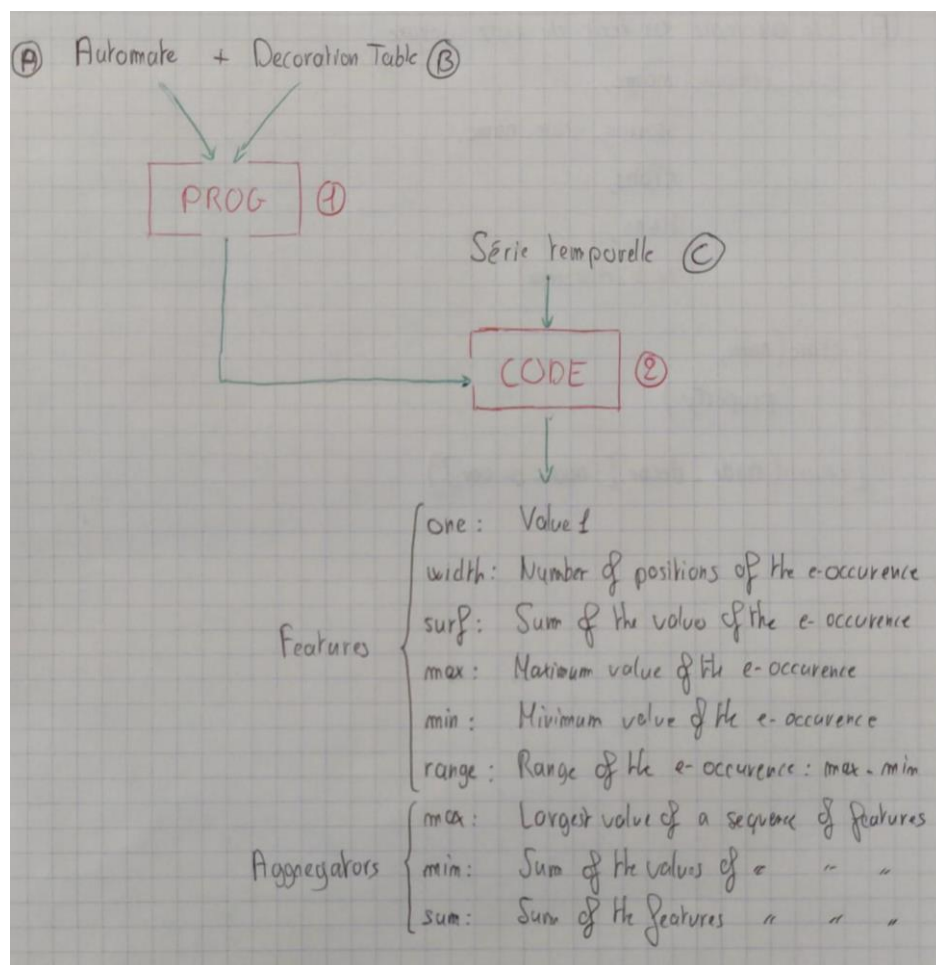 Ⓐ Automate + Decoration Table Ⓑ
PROG ①
Série temporelle Ⓒ
CODE ②
Features
one : Value 1
width : Number of positions of the e-occurence
surf : Sum of the value of the e-occurence
max : Maximum value of the e-occurence
min : Minimum value of the e-occurence
range : Range of the e-occurence : max - min
Aggregators
max : Largest value of a sequence of features
min : Sum of the values of " " "
sum : Sum of the features " " "